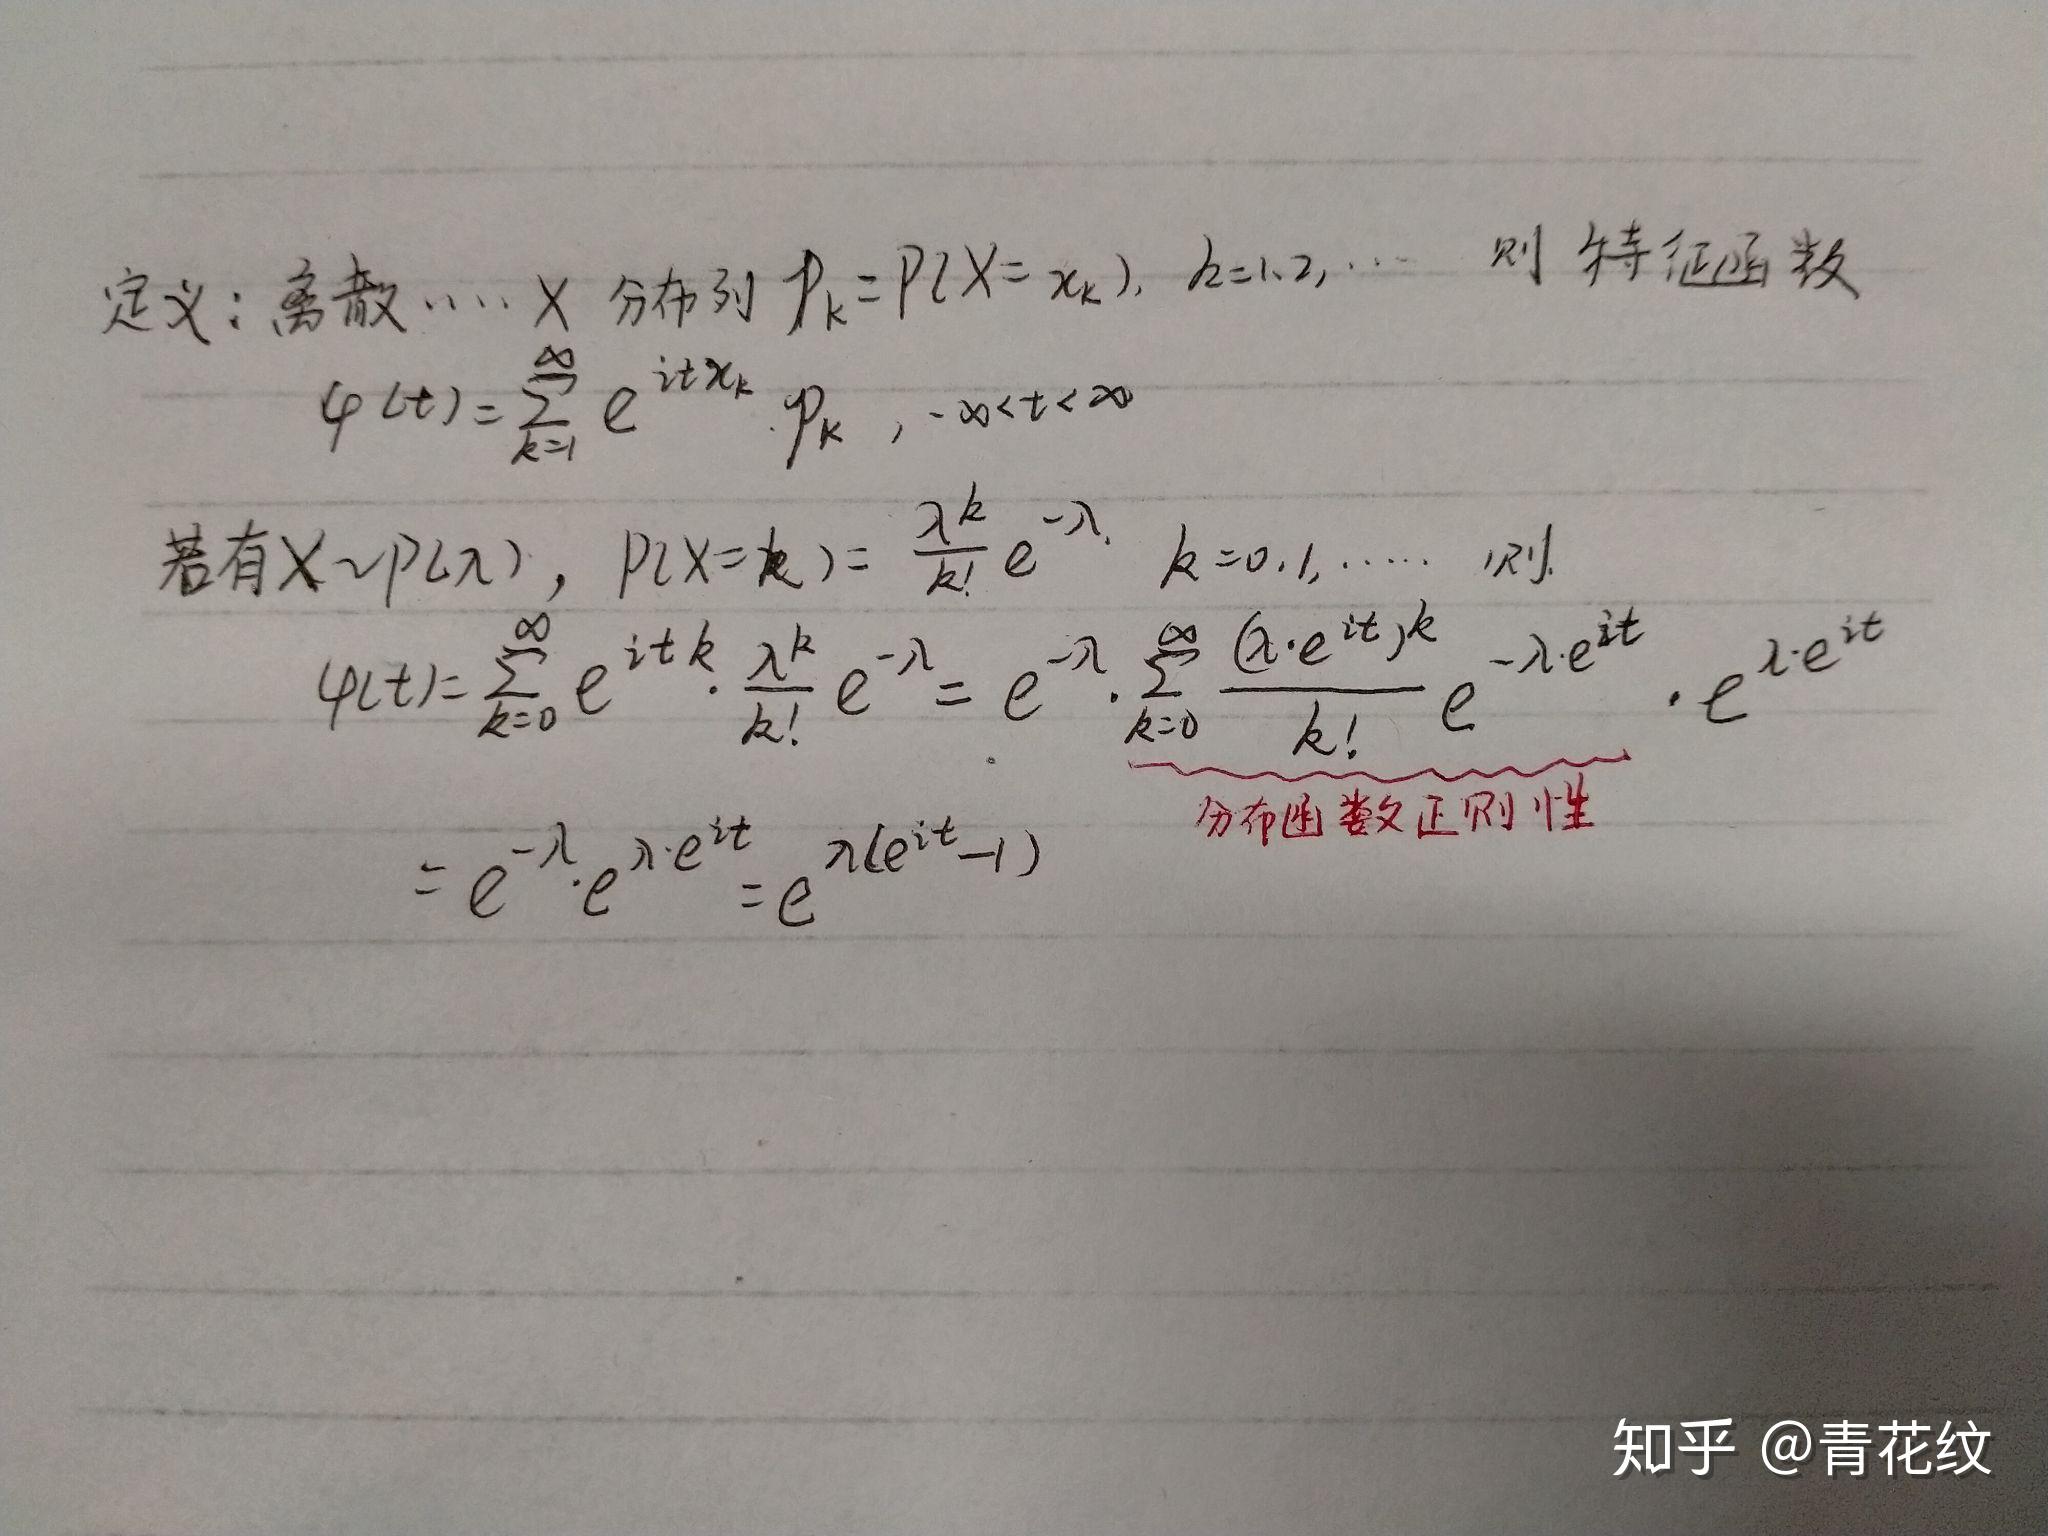 定义:离散····X 分布列 pₖ=P(X=xₖ), k=1,2,··· 则 特征函数
φ(t)=∑_{k=1}^{∞} e^{itxₖ}·pₖ, -∞<t<∞
若有X~P(λ), P(X=k)=\frac{λ^k}{k!}e^{-λ}, k=0,1,····· ,则
φ(t)=∑_{k=0}^{∞} e^{itk}·\frac{λ^k}{k!}e^{-λ}=e^{-λ}·∑_{k=0}^{∞}\frac{(λ·e^{it})^k}{k!}e^{-λ·e^{it}}·e^{λ·e^{it}}
分布函数正则性
=e^{-λ}·e^{λ·e^{it}}=e^{λ(e^{it}-1)}
知乎 @青花纹